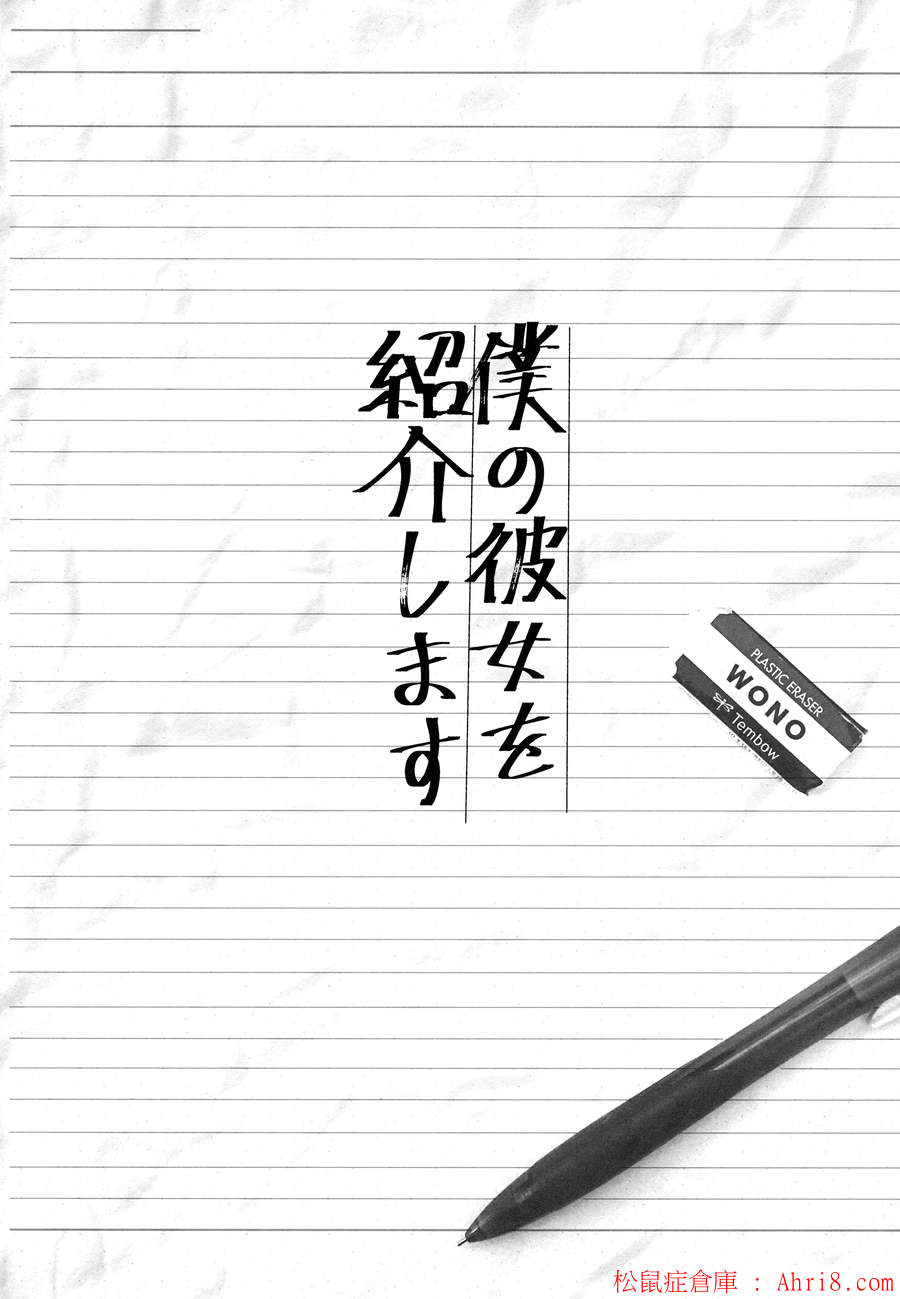 僕の彼女を
紹介します
PLASTIC ERASER
WONO
Tembow
松鼠症倉庫 : Ahri8.com